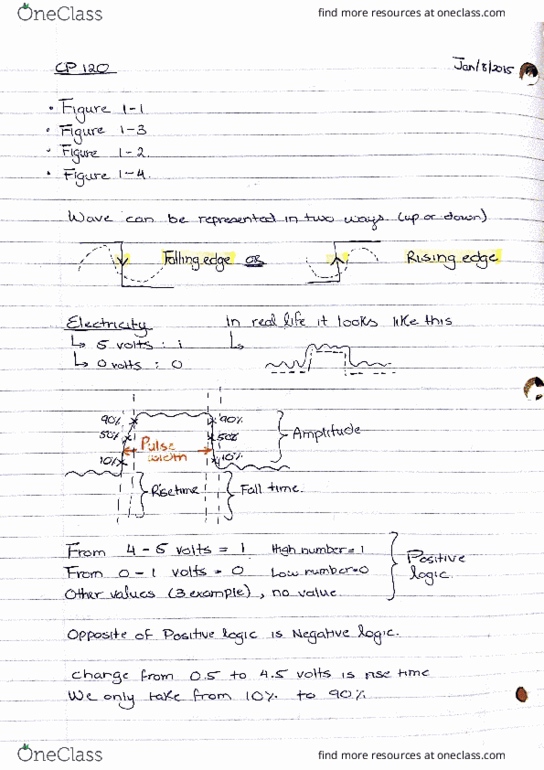 OneClass find more resources at oneclass.com
CP 120 Jan/8/2015
• Figure 1-1
• Figure 1-3
• Figure 1-2
• Figure 1-4
Wave can be represented in two ways (up or down)
Falling edge OR Rising edge
Electricity In real life it looks like this
↳ 5 volts : 1 ↳
↳ 0 volts : 0
90% 90%
50% 50% Amplitude
Pulse width
10% 10%
Risetime Fall time.
From 4-5 volts = 1 High number=1
From 0-1 volts = 0 Low number=0
Other values (3 example), no value.
Positive logic.
Opposite of Positive logic is Negative logic.
Charge from 0.5 to 4.5 volts is rise time
We only take from 10% to 90%
OneClass find more resources at oneclass.com